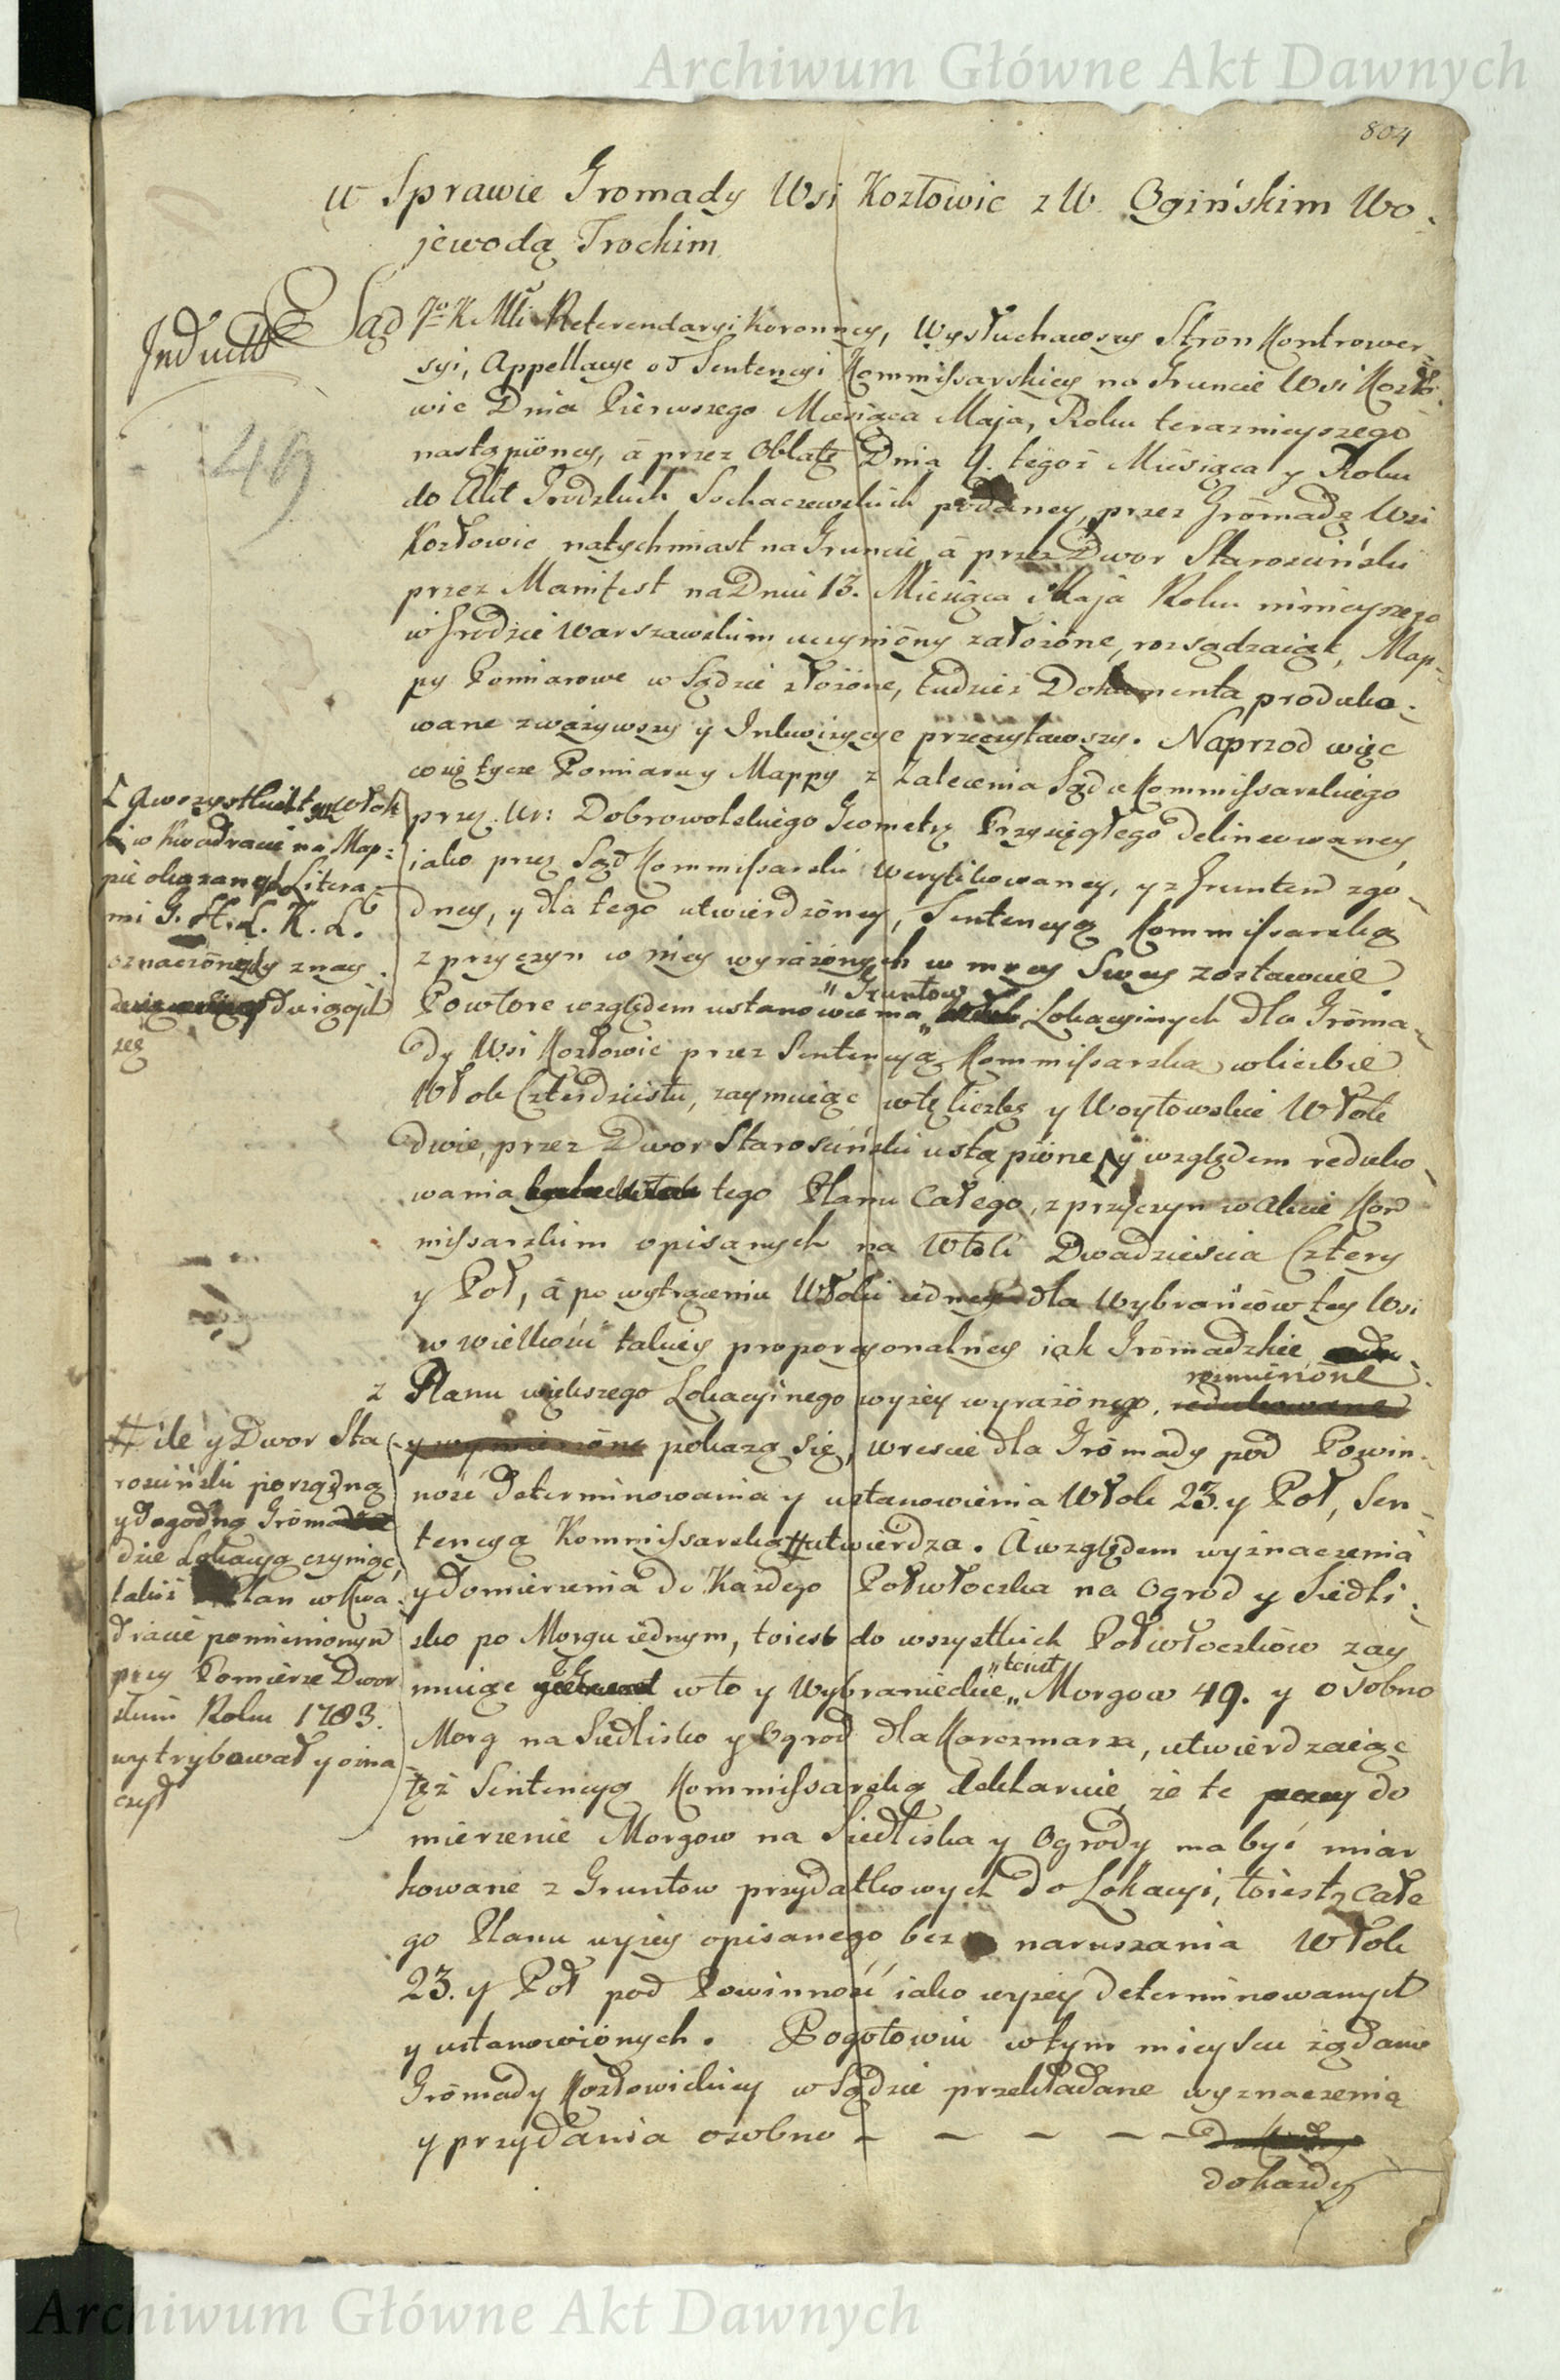 Archiwum Główne Akt Dawnych
804
W Sprawie Gromady Wsi Kozłowic z W. Ogińskim Wo-
jewodą Trockim
Inducta
49
Sąd JoKMci Referendaryi Koronney, Wysłuchawszy Strōn Kontrower-
syi, Appellacye od Sentencyi Kommissarskiey na Gruncie Wsi Kozło-
wic Dnia Pierwszego Miesiąca Maja, Roku teraznieyszego
nastąpiōney, ā przez Oblatę Dnia 9. tegoż Miesiąca y Roku
do Akt Grodzkich Sochaczewskich podaney, przez Grōmadę Wsi
Kozłowic natychmiast na Gruncie, ā przez Dwor Starosciński
przez Manifest na Dniu 13. Miesiąca Maja Roku ninieyszego
w Grodzie Warszawskim uczyniōny założōne, rozsądzaiąc, Map-
py Pomiarowe w Sądzie złożōne, tudzież Dokumenta produko-
wane zważywszy y Inkwizycye przeczytawszy. Naprzod więc
co się tycze Pomiaru y Mappy z Zalecenia Sądu Kommissarskiego
przez Ur: Dobrowolskiego Geometrę Przysięgłego delineowaney
iako przez Sąd Kommissarski weryfikowaney, y z Gruntem zgo-
dney, y dla tego utwierdzōney, Sentencyą Kommissarską
z przyczyn w niey wyrażōnych w mocy Swey zostawuie.
Powtore względem ustanowienia „Gruntow„ Lokacyinych dla Grōma-
dy Wsi Kozłowic przez Sentencyą Kommissarską w liczbie
Włok Czterdziestu, zaymuiąc w tę liczbę y Woytowskie Włoki
dwie, przez Dwor Starosciński ustąpiōne, y względem reduko-
wania tego Planu Całego, z przyczyn w Akcie Kom
missarskim opisanych na Włōk Dwadziescia Cztery
y Poł, ā po wytrąceniu Włoki iedney dla Wybrańcōw tey Wsi
w wielkości takiey proporcyonalney iak Grōmadzkie
z Planu większego Lokacyinego wyżey wyrażōnego, wymierzōne
pokażą się, wreszcie dla Grōmady pod Powin-
ność determinowania y ustanowienia Włok 23. y Poł, Sen-
tencyą Kommissarską # utwierdza. A względem wyznaczenia
y domierzenia do Każdego Połwłoczka na Ogrod y Siedli-
sko po Morgu iednym, toiest do wszystkich Połwłoczkōw zay
muiąc w to y Wybranieckie „toiest„ Morgow 49. y osobno
Morg na Siedlisko y Ogrod dla Karczmarza, utwierdzaiąc
tęż Sentencyą Kommissarską deklaruie, że te do
mierzenie Morgow na Siedliska y Ogrody ma być miar
kowane z Gruntow przydatkowych do Lokacyi, toiest z Całe
go Planu wyżey opisanego bez naruszania Włok
23. y Poł pod Powinność iako wyżey determinowanych
y ustanowiōnych. Pogotowiu w tym mieyscu żądanie
Grōmady Kozłowickiey w Sądzie przekładane wyznaczenia
y przydania osobno — — — — —
do każdey
w Kwadracie na Map-
pie okazanych Litera-
mi G. H. I. K. L.
oznaczōney znay-
duiących
się
# ile y Dwor Sta
rosciński porządną
y dogodną Grōma
dzie Lokacyą czyniąc,
takiż Plan w Kwa-
dracie pomienionym
przy Pomierze Dwor
skim Roku 1783.
wytrybował y ozna
czył
Archiwum Główne Akt Dawnych